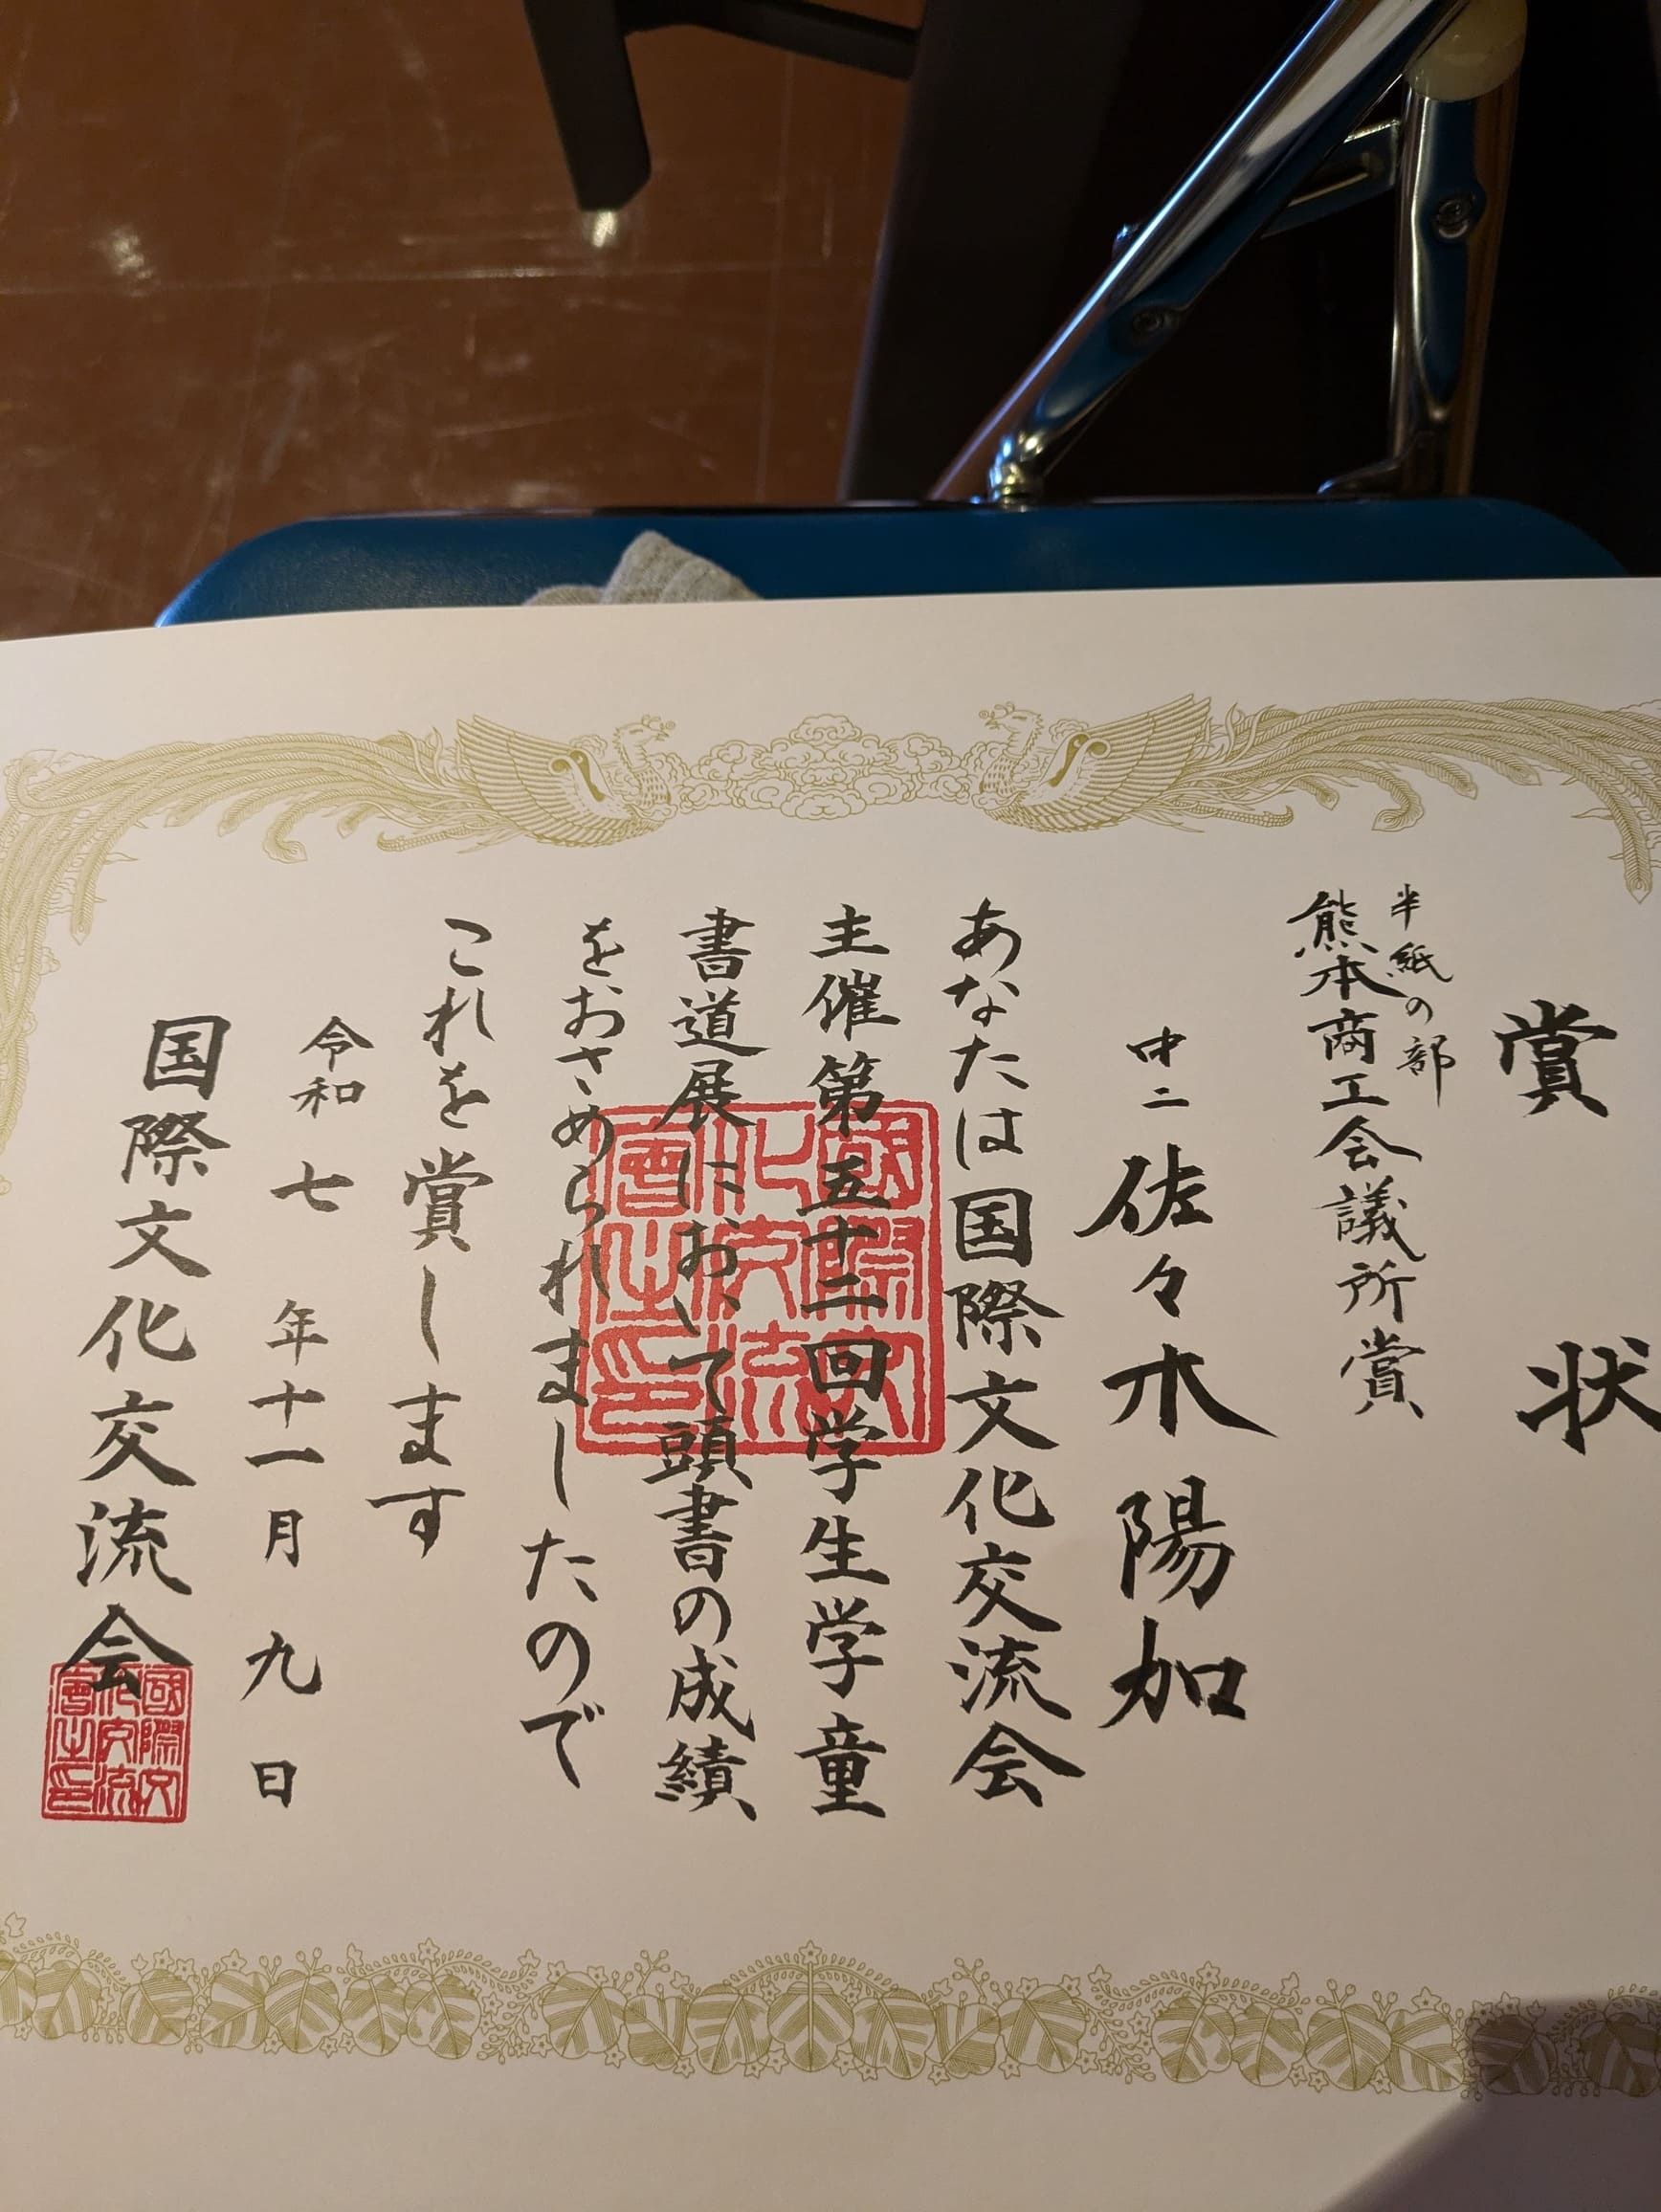 賞状
半紙の部
熊本商工会議所賞
中二 佐々木陽加
あなたは国際文化交流会
主催第五十二回学生学童
書道展において頭書の成績
をおさめられましたので
これを賞します
令和七年十一月九日
国際文化交流会
國際文化交流會之印
國際文化交流會之印